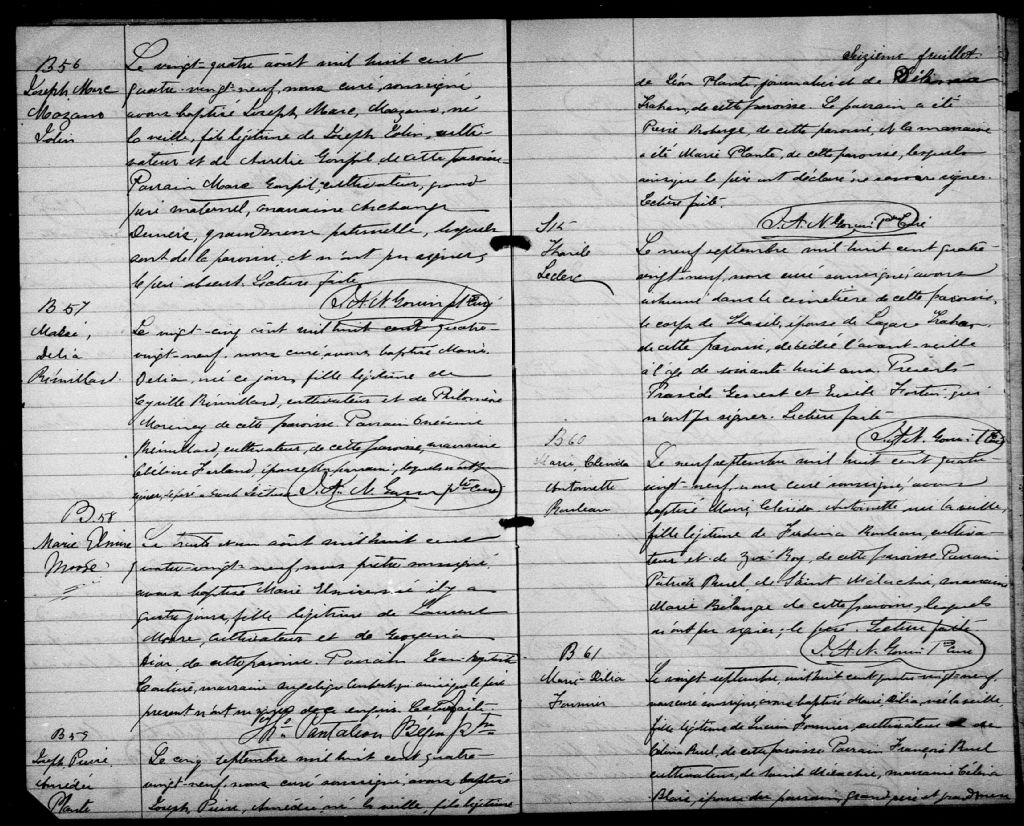 B56
Joseph Marc
Mozano
Le vingt-quatre août mil huit cent
quatre-vingt-neuf, nous curé, soussigné
avons baptisé Joseph, Marc, Mozano, né
la veille, fils légitime de Joseph
vateur et de Aurélie de cette paroisse
Parrain Marc cultivateur, grand
père maternel, marraine Archange
grandmère paternelle, lesquels
sont de la paroisse, et n'ont pu signer,
le père absent. Lecture faite
J. A. N. Gouin Ptre Curé
B 57
Marie,
Delia
Rémillard
Le vingt-cinq août mil huit cent quatre
vingt-neuf, nous curé avons baptisé Marie
Delia, née ce jour, fille légitime de
Cyrille Rémillard, cultivateur et de Philomène
de cette paroisse. Parrain Onésime
Rémillard, cultivateur, de cette paroisse, marraine
Ferland, épouse du parrain, lesquels n'ont pu
signer, le père Lecture
J. A. N. Gouin ptre curé
B 58
Marie Elmire
Moore
Le trente et un août mil huit cent
quatre-vingt-neuf, nous prêtre soussigné,
avons baptisé Marie Elmire née il y a
quatre jours, fille légitime de Laurent
Moore, cultivateur et de Georgina
de cette paroisse. Parrain Jean-Baptiste
Couture, marraine qui ainsi que le père
présent n'ont
Pantaléon Bégin Ptre
B 59
Joseph Pierre
Amédée
Plante
Le cinq septembre mil huit cent quatre
vingt-neuf, nous curé soussigné, avons baptisé
Joseph, Pierre, Amédée né la veille, fils légitime
Seizième feuillet
de Léon Plante, journalier et de Délima
Trahan, de cette paroisse. Le parrain a été
Pierre Roberge, de cette paroisse, et la marraine
a été Marie Plante, de cette paroisse, lesquels
ainsi que le père ont déclaré ne savoir signer.
Lecture faite.
J. A. N. Gouin Ptre Curé
S15
Leclerc
Le neuf septembre mil huit cent quatre
vingt-neuf, nous curé soussigné, avons
inhumé dans le cimetière de cette paroisse,
le corps de épouse de Lazare Trahan,
de cette paroisse, décédée l'avant-veille
à l'âge de soixante huit ans. Présents
et Fortin, qui
n'ont pu signer. Lecture faite
J. A. N. Gouin Ptre
B 60
Marie, Clerida
Antoinette
Rouleau
Le neuf septembre mil huit cent quatre
vingt-neuf, nous curé soussigné, avons
baptisé Marie, Clerida Antoinette née la veille,
fille légitime de Rouleau, cultiva-
teur et de Roy, de cette paroisse Parrain
Patrick de Saint Malachie, marraine
Marie Bélanger de cette paroisse, lesquels
n'ont pu signer; le père. Lecture faite
J. A. N. Gouin Ptre Curé
B 61
Marie-Délia
Fournier
Le vingt septembre, mil huit cent quatre vingt-neuf,
nous curé soussigné, avons baptisé Marie Délia, née la veille
fille légitime de Lucien Fournier, cultivateur et de
de cette paroisse Parrain François
cultivateur, de Saint Malachie, marraine Célina
Blais, épouse du parrain, grand père et grandmère